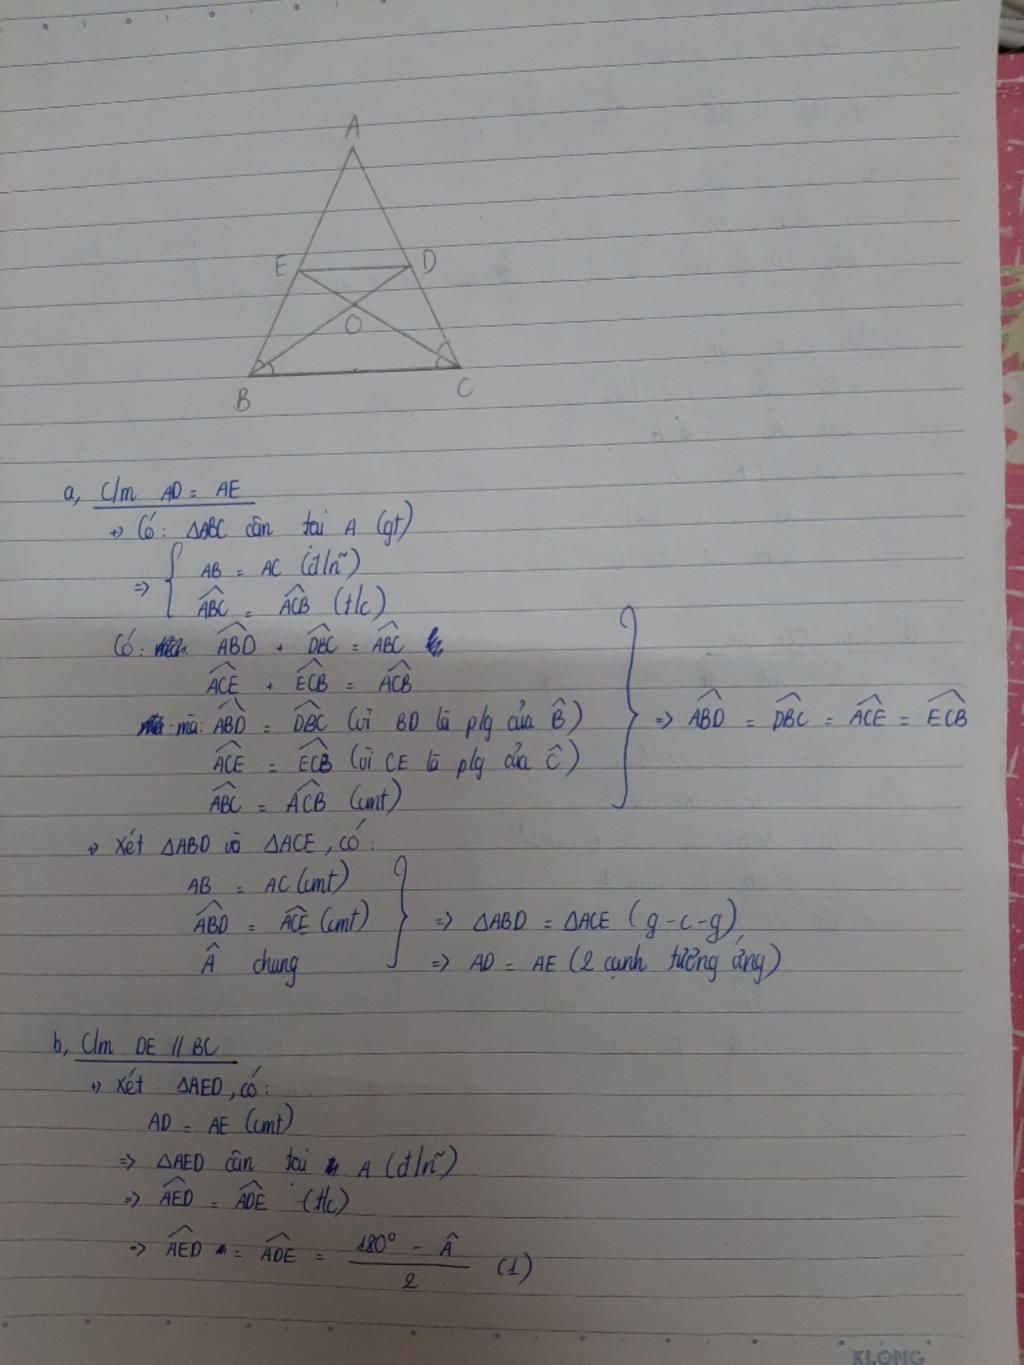 A
E
D
O
B
C
a, C/m AD = AE
+) Có: ΔABC cân tại A (gt)
=> { AB = AC (đ/n~)
ABC = ACB (t/c)
Có: ABD + DBC = ABC
ACE + ECB = ACB
mà: ABD = DBC (vì BD là p/g của B̂)
ACE = ECB (vì CE là p/g của Ĉ)
ABC = ACB (cmt)
=> ABD = DBC = ACE = ECB
+) Xét ΔABD và ΔACE, có:
AB = AC (cmt)
ABD = ACE (cmt)
 chung
=> ΔABD = ΔACE (g-c-g)
=> AD = AE (2 cạnh tương ứng)
b, C/m DE // BC
+) Xét ΔAED, có:
AD = AE (cmt)
=> ΔAED cân tại A (đ/n~)
=> AED = ADE (t/c)
=> AED = ADE = (180° - Â) / 2 (1)
KLONG